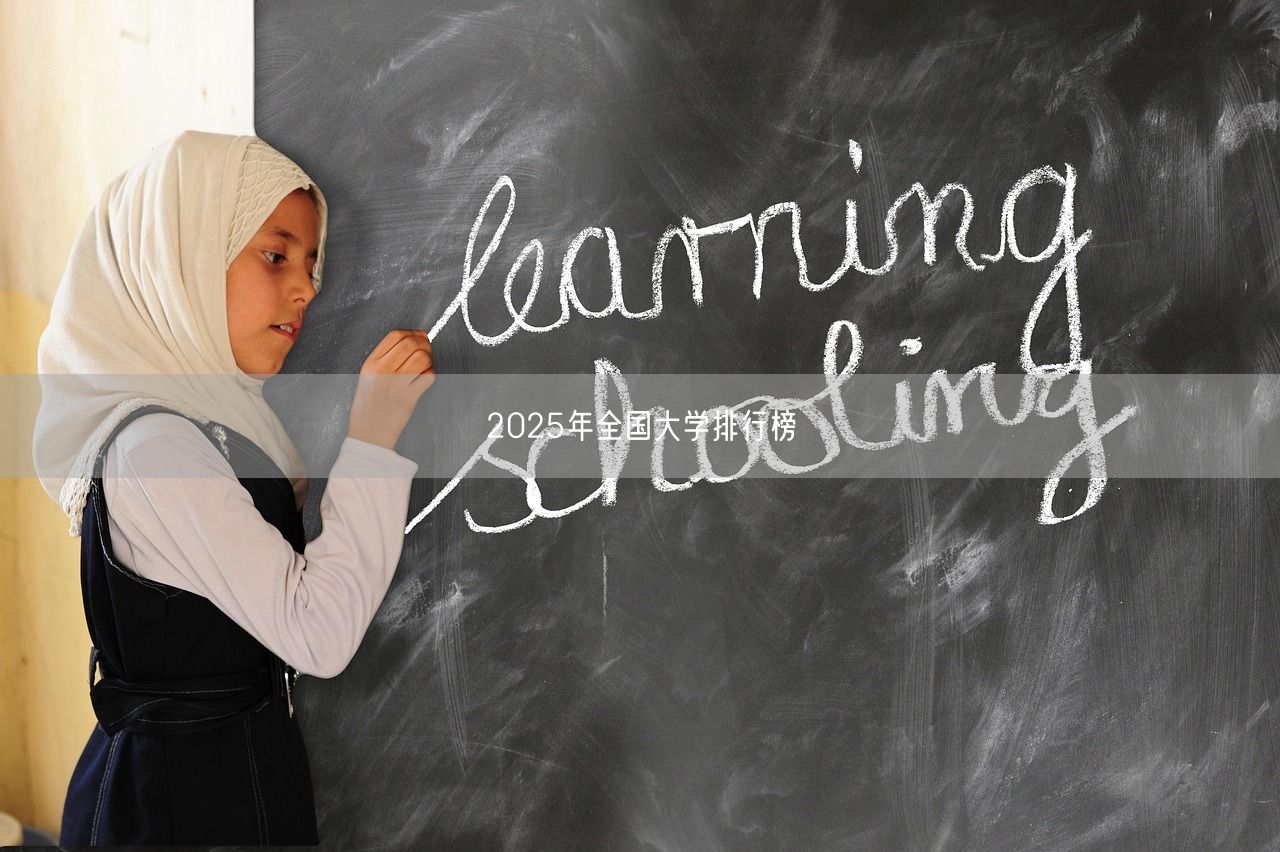 learning
schooling
2025年全国大学排行榜